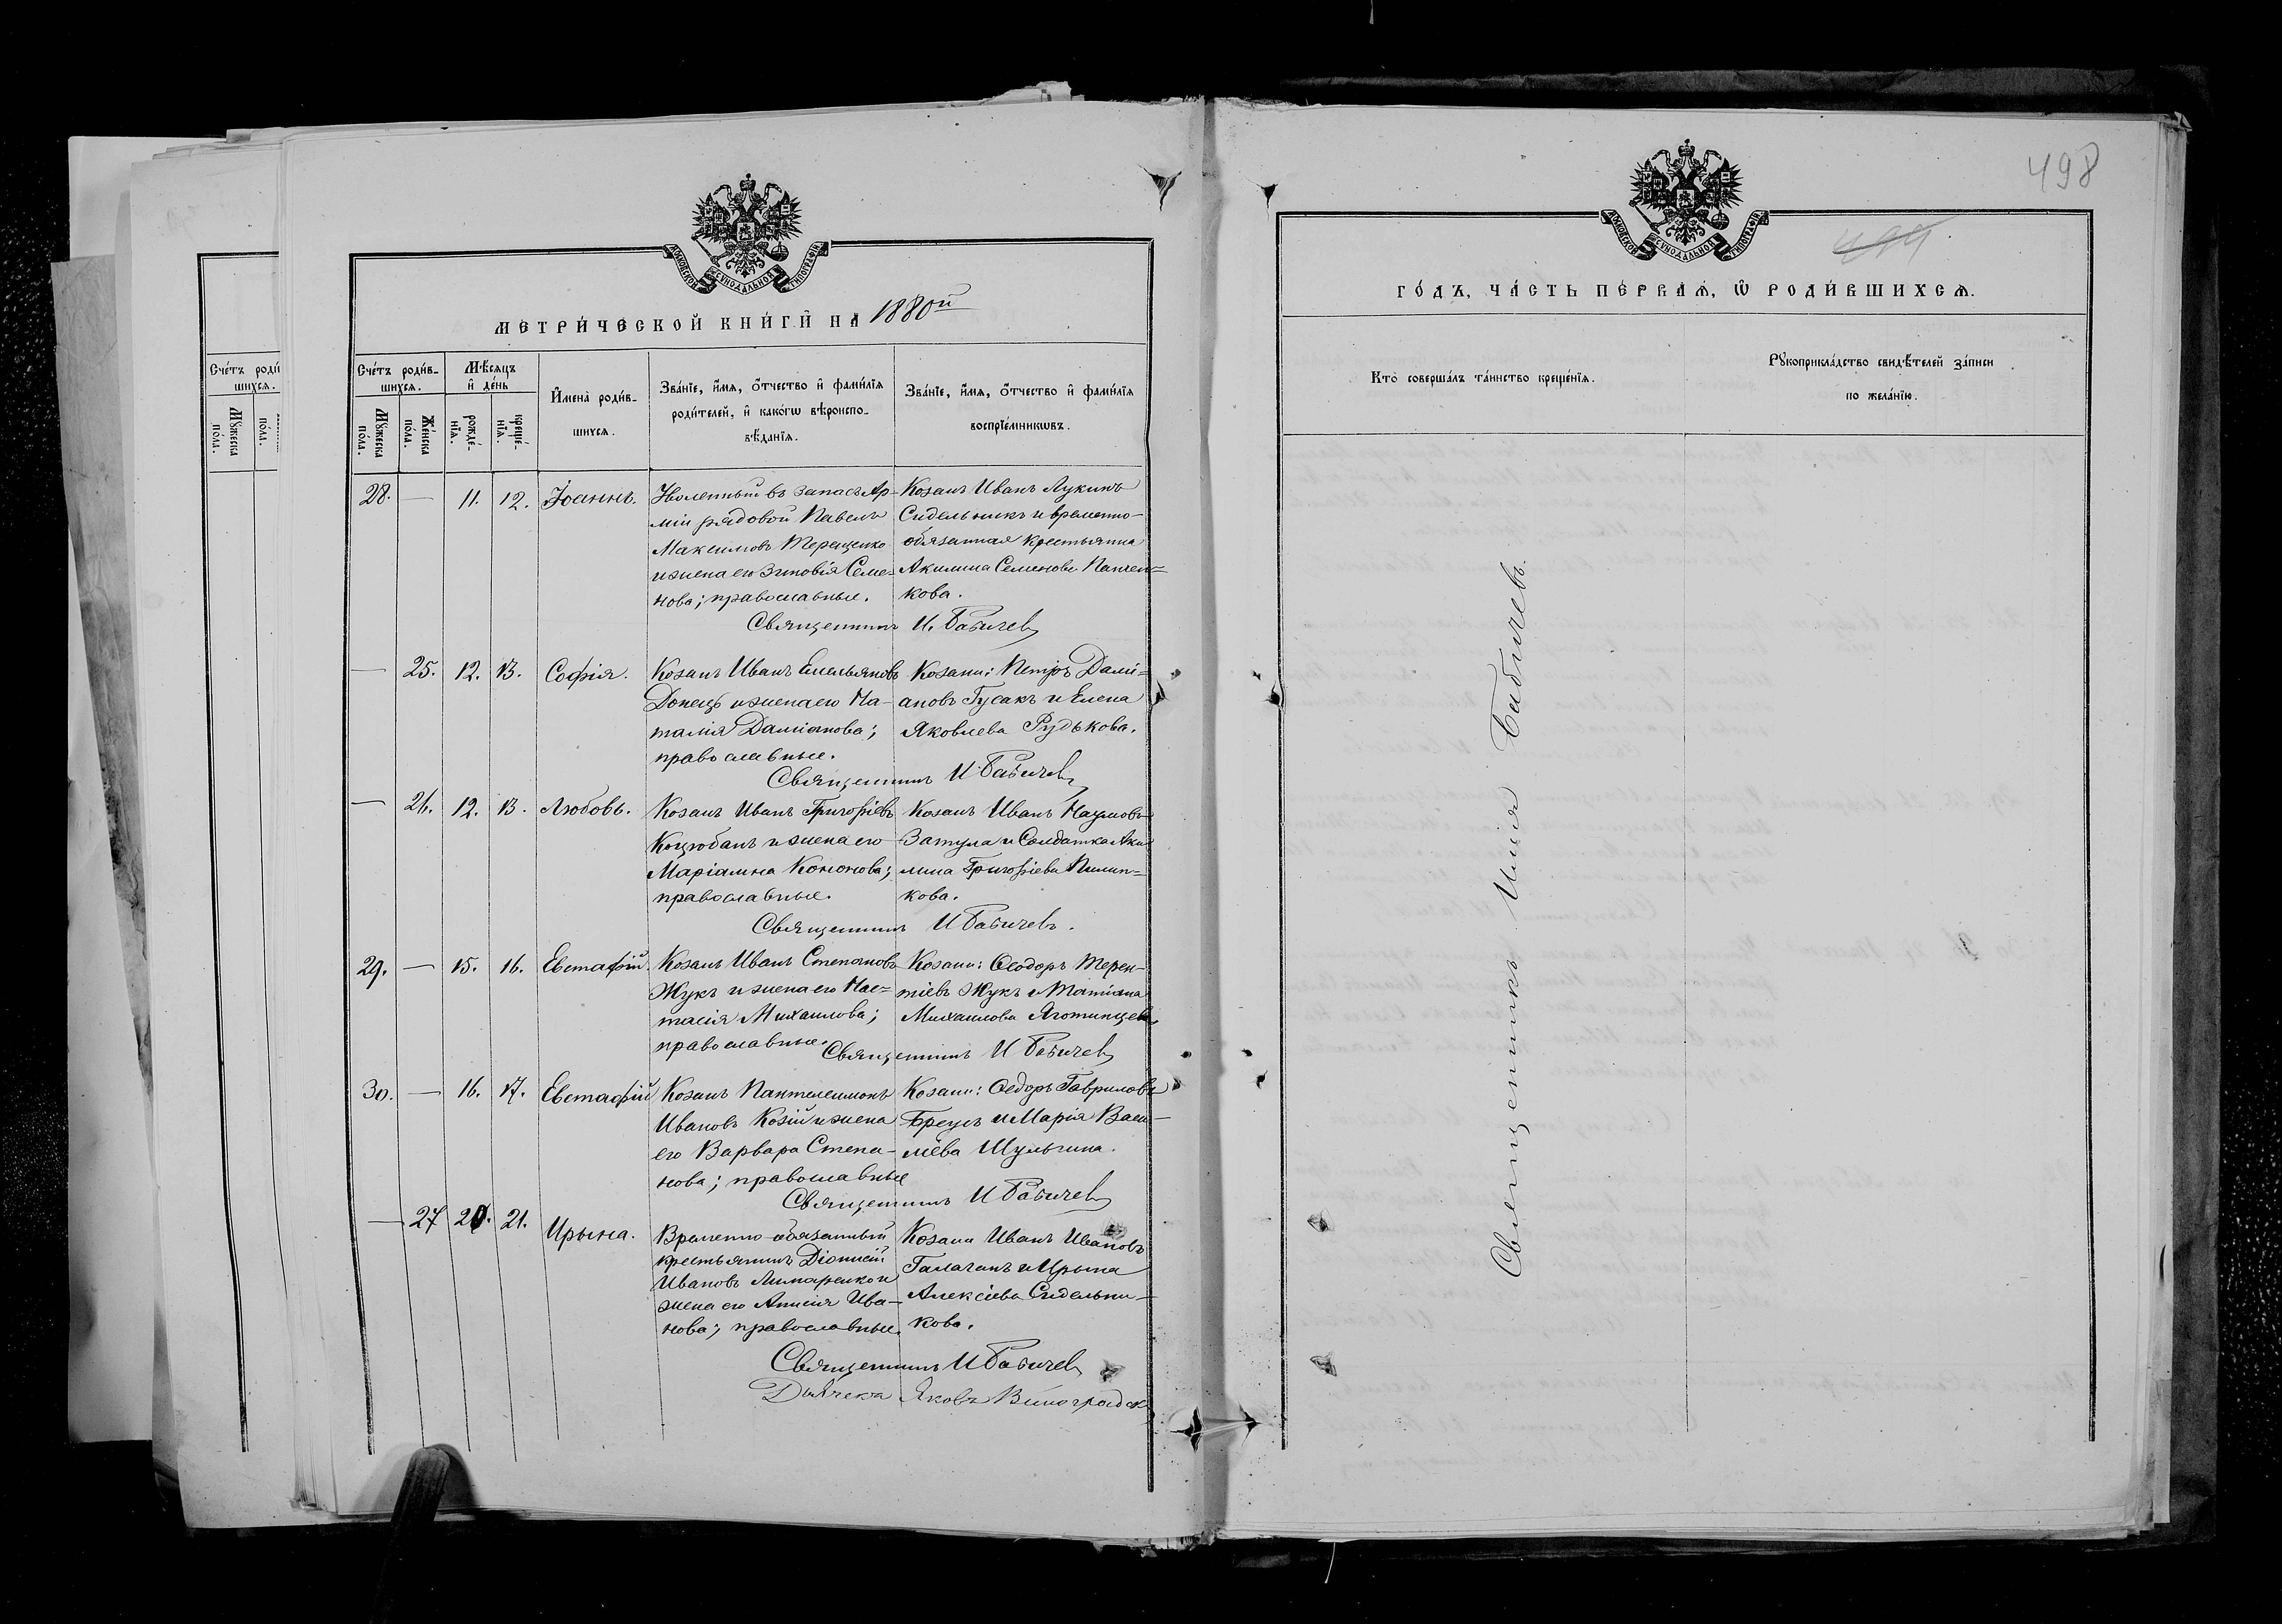 498
499
МОСКОВСКОЙ СУНОДАЛЬНОЙ ТИПОГРАФІИ
МЕТРИ́ЧЕСКОЙ КНИ́ГИ НА 1880й
Счéтъ роди́в-
шихсѧ.
Мѣ́сяцъ
и҆ де́нь
И҆мена̀ роди́в-
шихсѧ.
Зва́нїе, и҆́мѧ, ѻ҆́тчество и҆ фами́лїѧ
роди́телей, и҆ како́гѡ вѣроиспо-
вѣ́данїѧ.
Зва́нїе, и҆́мѧ, ѻ҆́тчество и҆ фами́лїѧ
воспрїе́мникѡвъ.
Мꙋ́жеска
по́ла.
Же́нска
по́ла.
рожде́-
нїѧ.
креще́-
нїѧ.
28. — 11. 12. Іоаннъ.
Уволенный въ запасъ Ар-
міи рядовой Павелъ
Максимовъ Терещенко
и жена его Зиновія Семе-
нова; православные.
Козакъ Иванъ Лукинъ
Сидельникъ и временно-
обязанная крестьянка
Акилина Семенова Панчен=
кова.
Священникъ И. Бабичевъ
— 25. 12. 13. Софія.
Козакъ Иванъ Емельяновъ
Донецъ и жена его На-
талія Даміанова;
православные.
Козаки: Петръ Дамі=
ановъ Гусакъ и Елена
Яковлева Рудькова.
Священникъ И Бабичевъ
— 26. 12. 13. Любовь.
Козакъ Иванъ Григоріевъ
Коцюбанъ и жена его
Маріамна Кононова;
православные.
Козакъ Иванъ Наумовъ
Затула и Солдатка Аки
лина Григоріева Пилип=
кова.
Священникъ И Бабичевъ.
29. — 15. 16. Евстафій.
Козакъ Иванъ Степановъ
Жукъ и жена его Нас=
тасія Михаилова;
православные.
Козаки: Ѳеодоръ Терен-
тіевъ Жукъ и Татіана
Михаилова Яготинцева
Священникъ И Бабичевъ
30. — 16. 17. Евстафій
Козакъ Пантелеимонъ
Ивановъ Козій и жена
его Варвара Степа-
нова; православные
Козаки: Ѳедоръ Гавриловъ
Бреусъ и Марія Васи-
ліева Шульгина.
Священникъ И Бабичевъ
— 27 20. 21. Ирына.
Временно-обязанный
крестьянинъ Діонисій
Ивановъ Лимаренко и
жена его Анисія Ива-
нова; православные.
Козаки Иванъ Ивановъ
Галаганъ и Ирына
Алексіева Сидельни-
кова.
Священникъ И Бабичевъ
Дьячекъ Яковъ Виноградск
МОСКОВСКОЙ СУНОДАЛЬНОЙ ТИПОГРАФІИ
ГО́ДЪ, ЧА́СТЬ ПЕ́РВАѦ, Ѡ҆ РОДИ́ВШИХСѦ.
Кто̀ соверша́лъ та́инство креще́нїѧ.
Рꙋкоприкла́дство свидѣ́телей за́писи
по жела́нїю.
Священникъ Илія Бабичевъ.
Счéтъ роди
шихсѧ.
Мꙋ́жеска
по́ла.
по́ла.